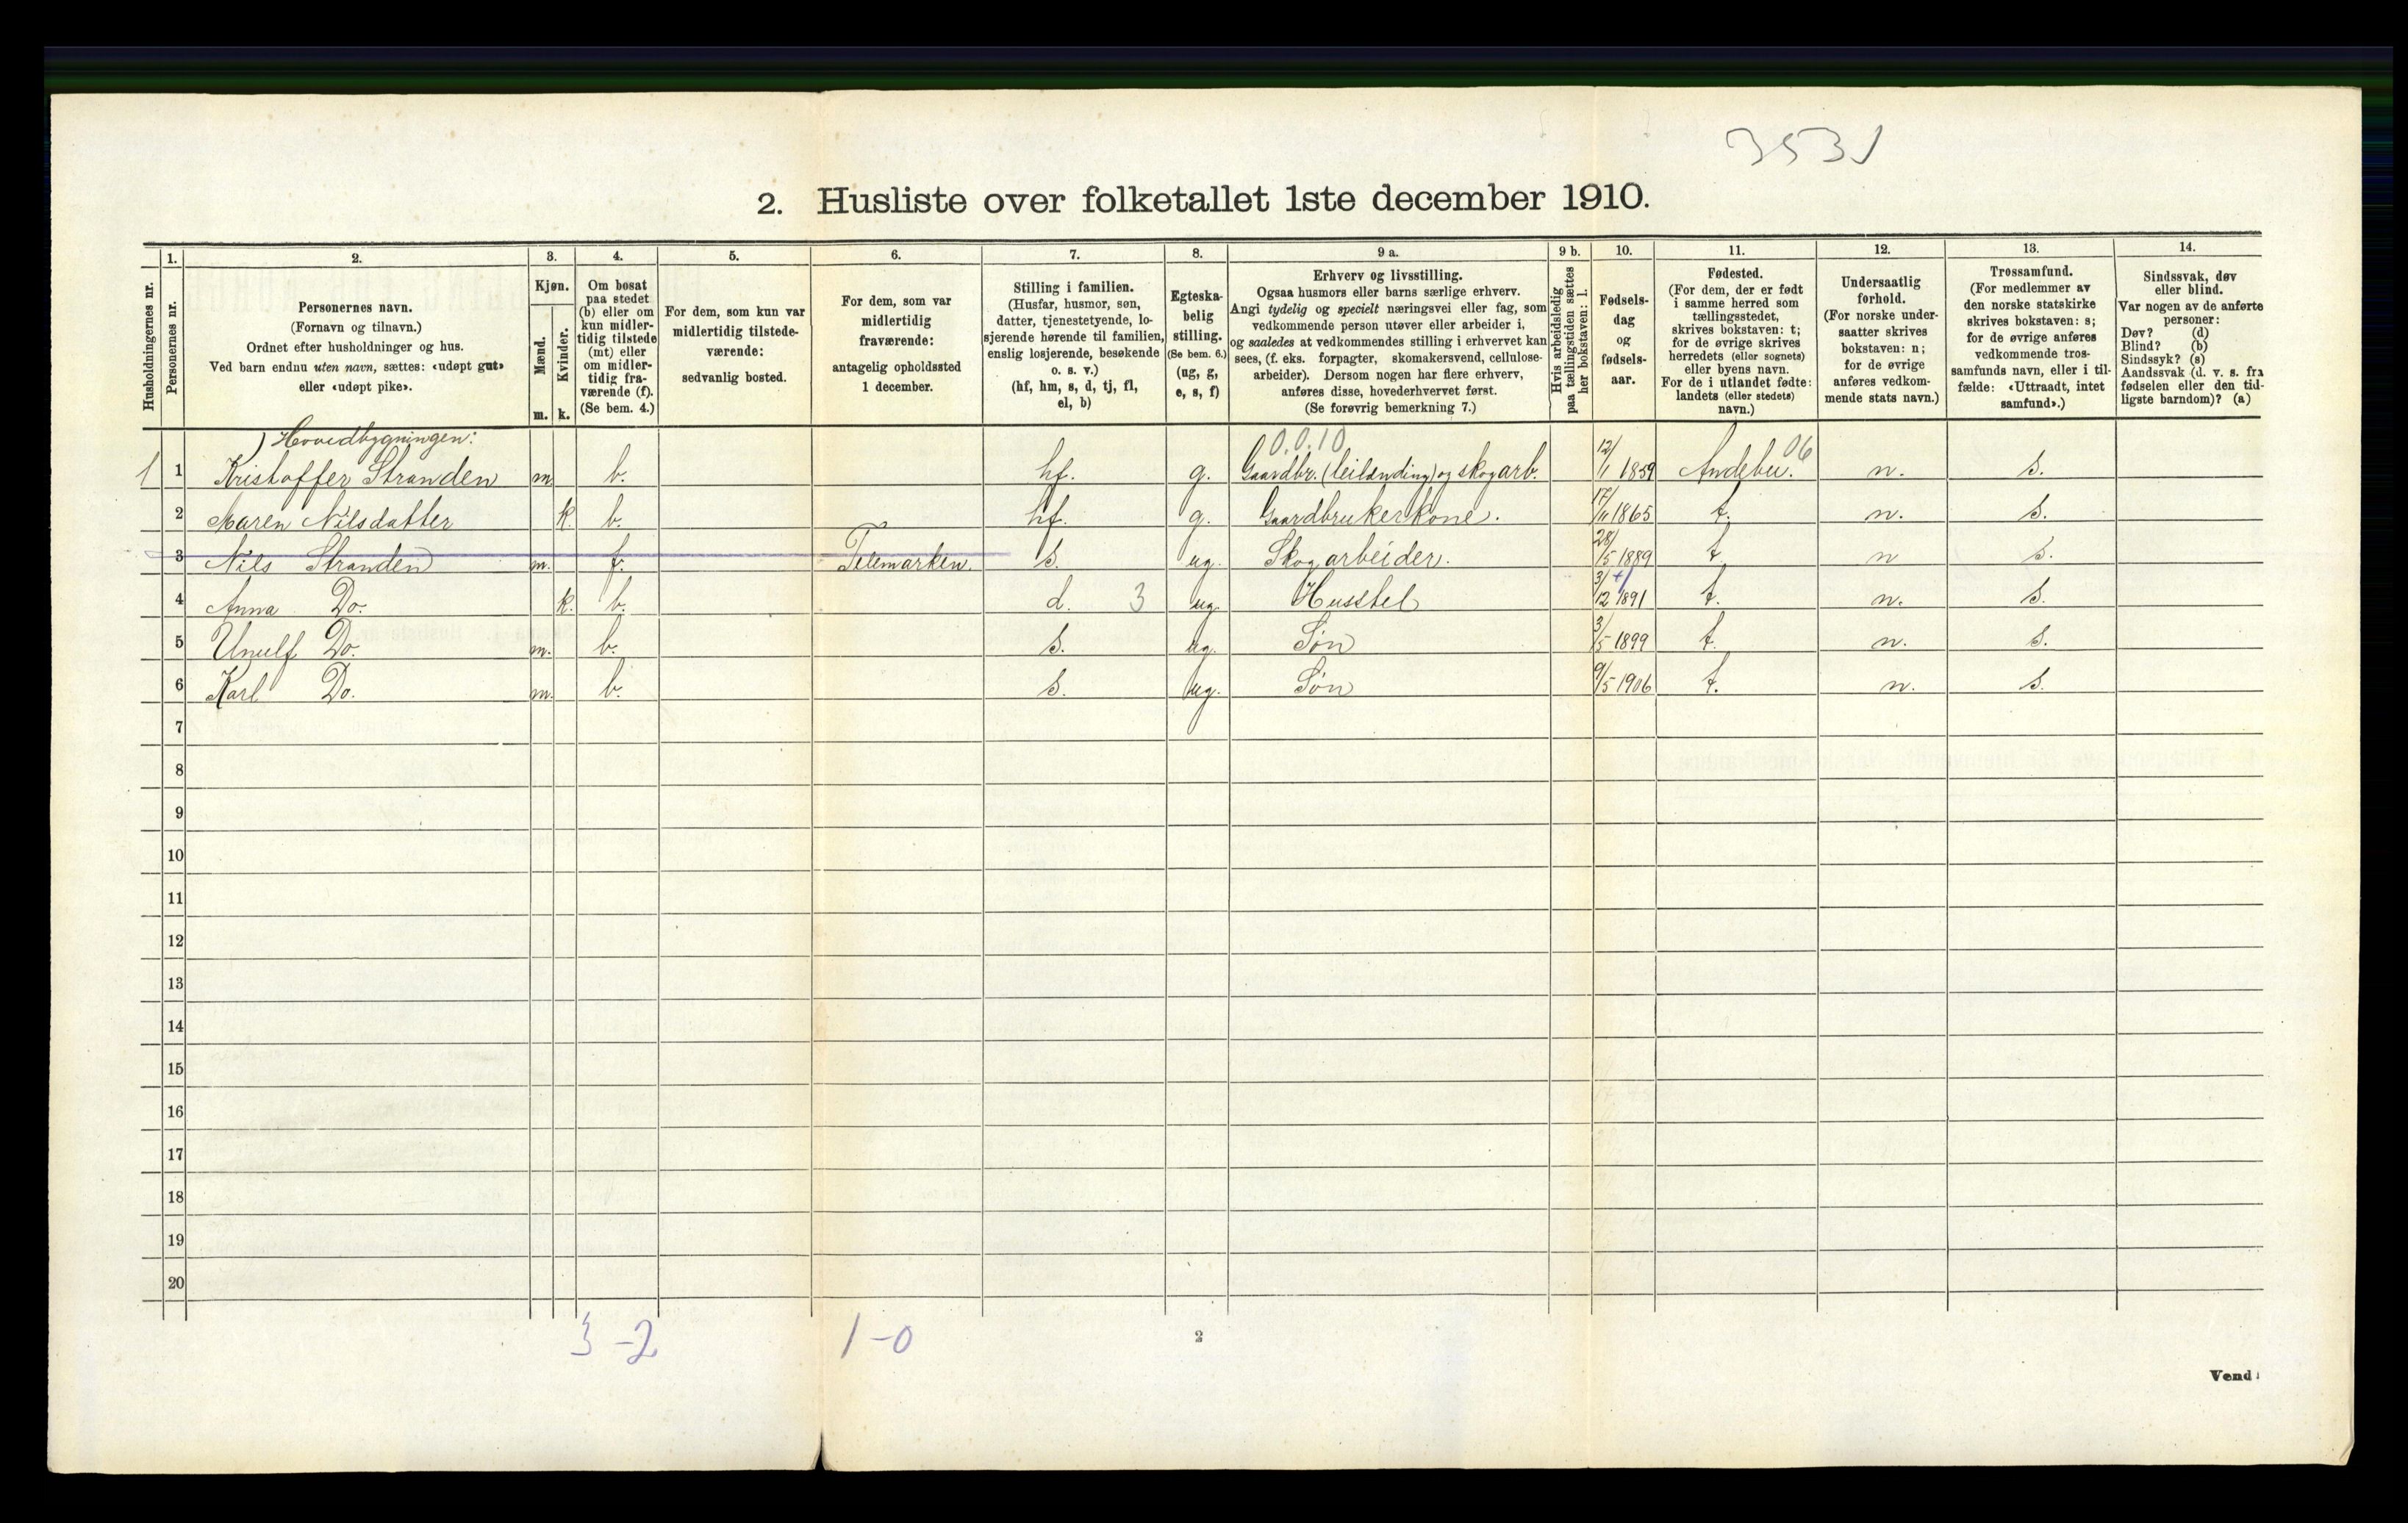 3531
2. Husliste over folketallet 1ste december 1910.
Husholdningernes nr.
1.
Personernes nr.
2.
Personernes navn.
(Fornavn og tilnavn.)
Ordnet efter husholdninger og hus.
Ved barn endnu uten navn, sættes: «udøpt gut»
eller «udøpt pike».
3.
Kjøn.
Mænd.
Kvinder.
m. k.
4.
Om bosat
paa stedet
(b) eller om
kun midler-
tidig tilstede
(mt) eller
om midler-
tidig fra-
værende (f).
(Se bem. 4.)
5.
For dem, som kun var
midlertidig tilstede-
værende:
sedvanlig bosted.
6.
For dem, som var
midlertidig
fraværende:
antagelig opholdssted
1 december.
7.
Stilling i familien.
(Husfar, husmor, søn,
datter, tjenestetyende, lo-
sjerende hørende til familien,
enslig losjerende, besøkende
o. s. v.)
(hf, hm, s, d, tj, fl,
el, b)
8.
Egteska-
belig
stilling.
(Se bem. 6.)
(ug, g,
e, s, f)
9 a.
Erhverv og livsstilling.
Ogsaa husmors eller barns særlige erhverv.
Angi tydelig og specielt næringsvei eller fag, som
vedkommende person utøver eller arbeider i,
og saaledes at vedkommendes stilling i erhvervet kan
sees, (f. eks. forpagter, skomakersvend, cellulose-
arbeider). Dersom nogen har flere erhverv,
anføres disse, hovederhvervet først.
(Se forøvrig bemerkning 7.)
9 b.
Hvis arbeidsledig
paa tællingstiden sættes
her bokstaven: l.
10.
Fødsels-
dag
og
fødsels-
aar.
11.
Fødested.
(For dem, der er født
i samme herred som
tællingsstedet,
skrives bokstaven: t;
for de øvrige skrives
herredets (eller sognets)
eller byens navn.
For de i utlandet fødte:
landets (eller stedets)
navn.)
12.
Undersaatlig
forhold.
(For norske under-
saatter skrives
bokstaven: n;
for de øvrige
anføres vedkom-
mende stats navn.)
13.
Trossamfund.
(For medlemmer av
den norske statskirke
skrives bokstaven: s;
for de øvrige anføres
vedkommende tros-
samfunds navn, eller i til-
fælde: «Uttraadt, intet
samfund».)
14.
Sindssvak, døv
eller blind.
Var nogen av de anførte
personer:
Døv? (d)
Blind? (b)
Sindssyk? (s)
Aandssvak (d. v. s. fra
fødselen eller den tid-
ligste barndom)? (a)
Hovedbygningen: 0.0.10.
1 1 Kristoffer Stranden m b. hf. g. Gaardbr. (leilænding) og skogarb. 12/1 1859 Andebu. 06 n. s.
2 Maren Nilsdatter k. b. hf. g. Gaardbrukerkone. 17/11 1865 t. n. s.
3 Nils Stranden m. f. Telemarken. s. ug. Skogarbeider. 28/5 1889 t. n s.
4 Anna Do. k. b. d. 3 ug. Husstel 3/12 1891 t. n. s.
5 Unulf Do. m. b. s. ug. Søn 3/5 1899 t. n. s.
6 Karl Do. m. b. s. ug. Søn 9/5 1906 t. n. s.
7
8
9
10
11
12
13
14
15
16
17
18
19
20
3-2 1-0
2
Vend